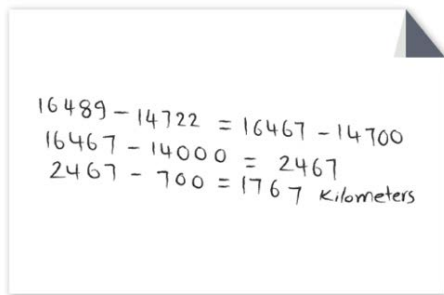 16489 - 14722 = 16467 - 14700
16467 - 14000 = 2467
2467 - 700 = 1767 Kilometers